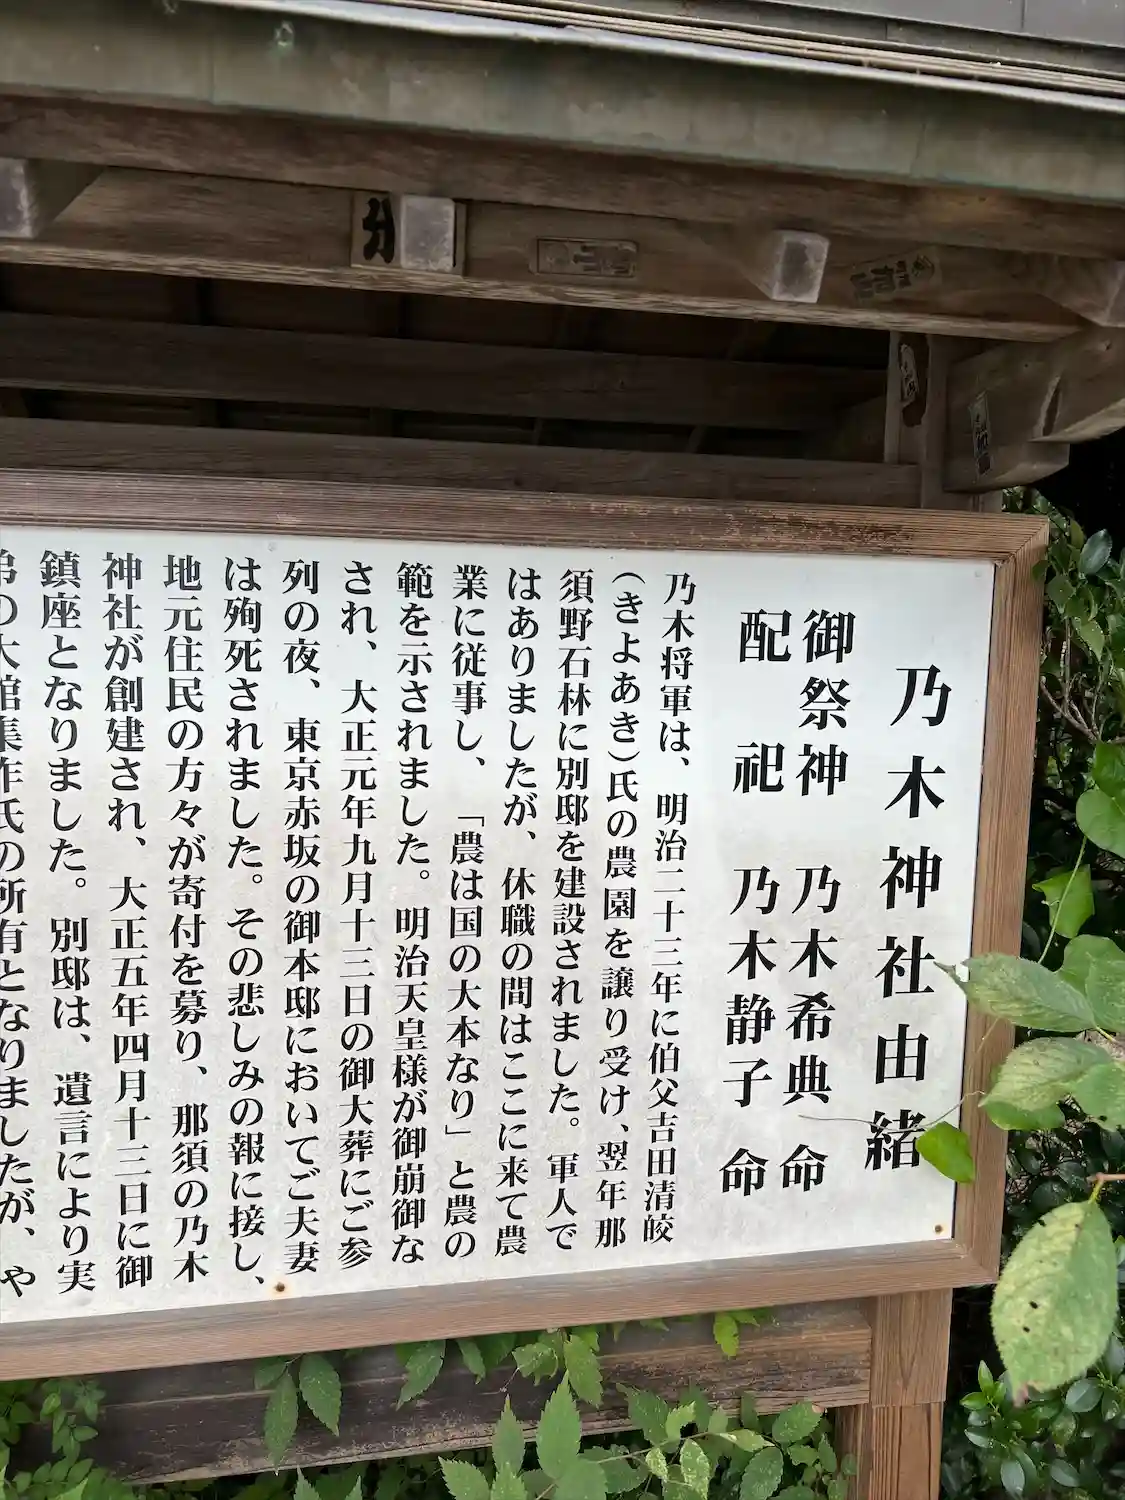 乃木神社由緒
御祭神 乃木希典 命
配祀 乃木静子 命
乃木将軍は、明治二十三年に伯父吉田清皎
(きよあき)氏の農園を譲り受け、翌年那
須野石林に別邸を建設されました。軍人で
はありましたが、休職の間はここに来て農
業に従事し、「農は国の大本なり」と農の
範を示されました。明治天皇様が御崩御な
され、大正元年九月十三日の御大葬にご参
列の夜、東京赤坂の御本邸においてご夫妻
は殉死されました。その悲しみの報に接し、
地元住民の方々が寄付を募り、那須の乃木
神社が創建され、大正五年四月十三日に御
鎮座となりました。別邸は、遺言により実
弟の大館集作氏の所有となりましたが、や